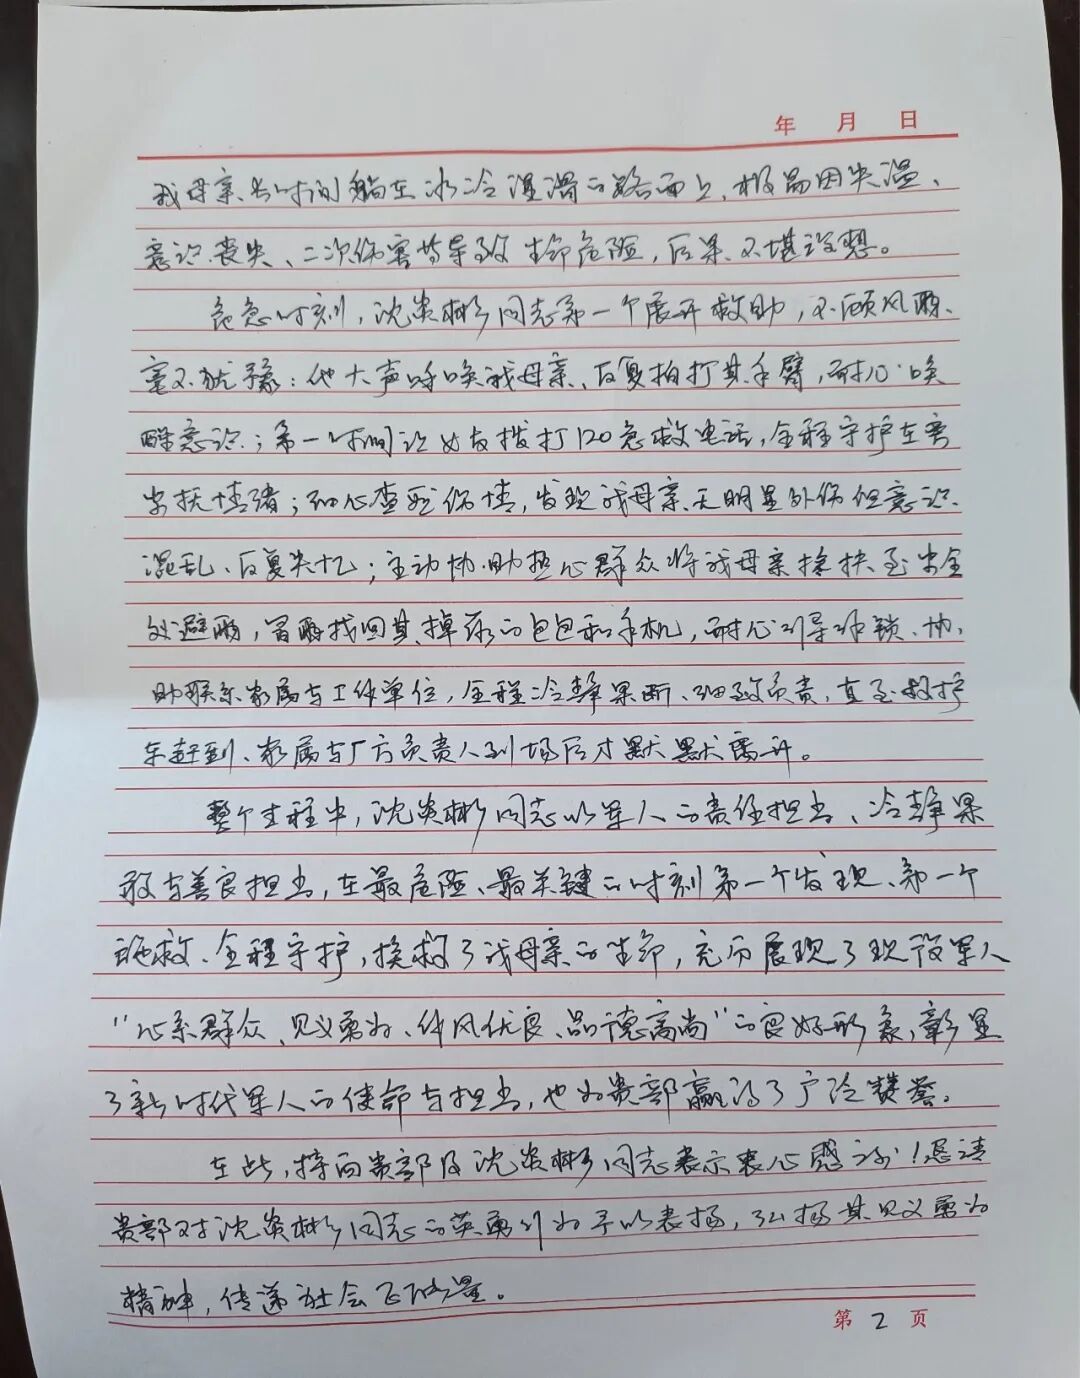 年 月 日
我母亲长时间躺在冰冷湿滑的路面上，极易因失温、
意识丧失、二次伤害等导致生命危险，后果不堪设想。
危急时刻，沈炎彬同志第一个展开救助，不顾风雨、
毫不犹豫：他大声呼唤我母亲、反复拍打其手臂，耐心唤
醒意识；第一时间让女友拨打120急救电话，全程守护在旁
安抚情绪；细心查验伤情，发现我母亲无明显外伤但意识
混乱、反复失忆；主动协助热心群众将我母亲搀扶至安全
处避雨，冒雨找回其掉落的包包和手机，耐心引导解锁、协
助联系家属与工作单位，全程冷静果断、细致负责，直至救护
车赶到、家属与厂方负责人到场后才默默离开。
整个过程中，沈炎彬同志以军人的责任担当、冷静果
敢与善良担当，在最危险、最关键的时刻第一个发现、第一个
施救、全程守护，挽救了我母亲的生命，充分展现了现役军人
“心系群众、见义勇为、作风优良、品德高尚”的良好形象，彰显
了新时代军人的使命与担当，也为贵部赢得了广泛赞誉。
在此，特向贵部及沈炎彬同志表示衷心感谢！恳请
贵部对沈炎彬同志的英勇行为予以表扬，弘扬其见义勇为
精神，传递社会正能量。
第 2 页